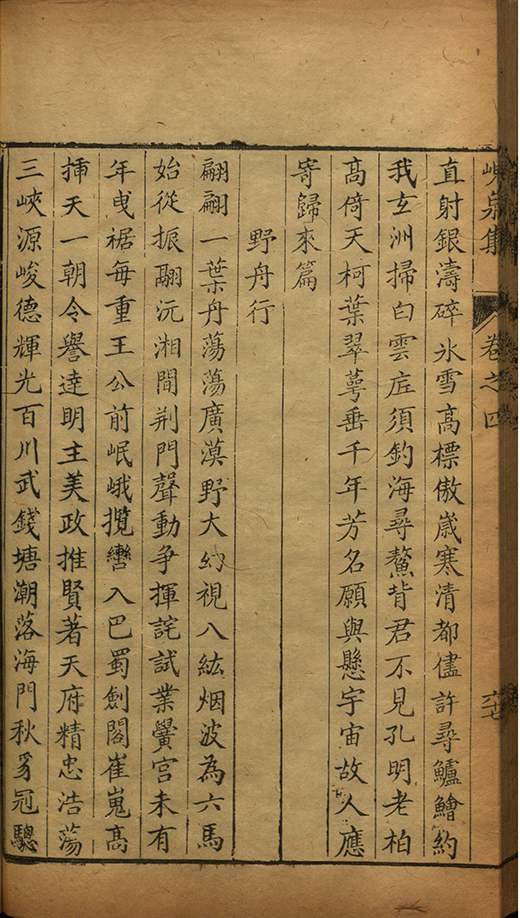 峴泉集 卷之四
直射銀濤碎氷雪高標傲歲寒清都儘許尋鱸鱠約
我玄洲掃白雲庄須釣海尋鰲背君不見孔明老柏
髙倚天柯葉翠蕚垂千年芳名願與懸宇宙故人應
寄歸來篇
野舟行
翩翩一葉舟蕩蕩廣漠野大約視八紘烟波為六馬
始從振翮沅湘間荆門聲動争揮詫試業黌宮未有
年曵裾每重王公前岷峨攬轡入巴蜀劍閣崔嵬髙
揷天一朝令譽達明主美政推賢著天府精忠浩蕩
三峽源峻德輝光百川武錢塘潮落海門秋豸冠驄